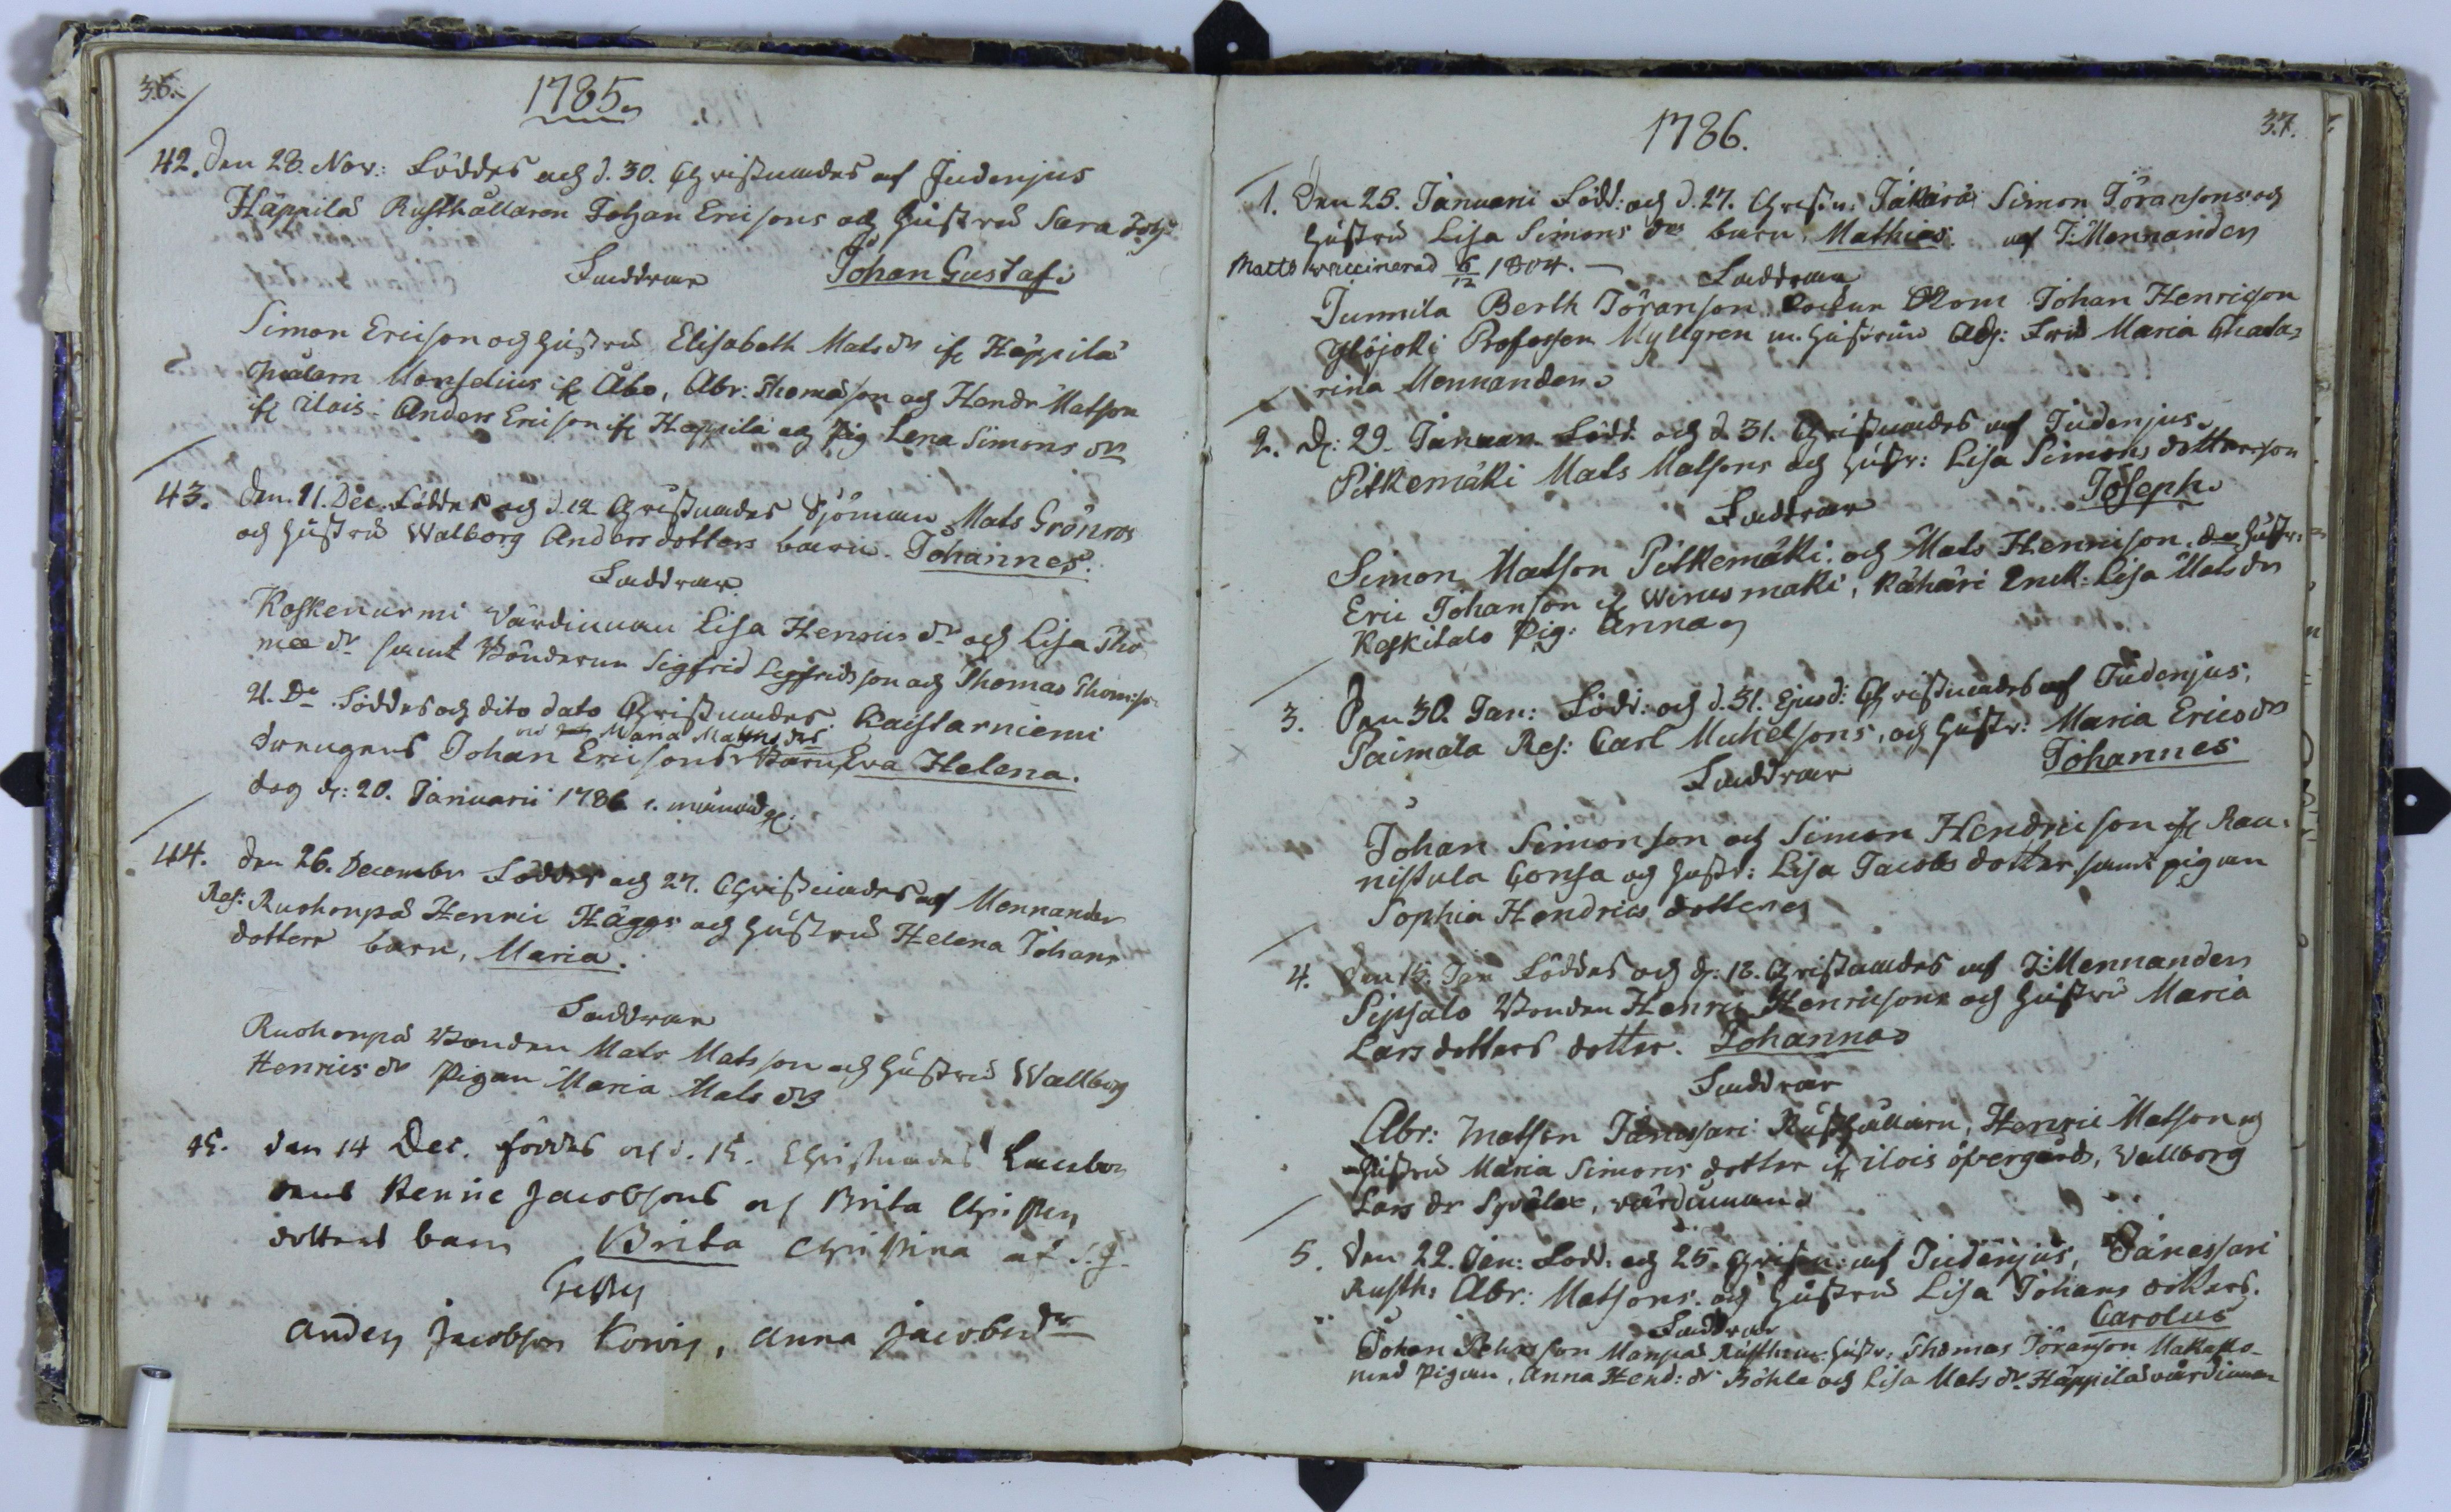 36.
1785.
42. Den 28. Nov: Föddes och d. 30. Christnades af Judenjus
Häppilä Rusthållaren Johan Ericsons och Hustru Sara Joh:
Faddrar Johan Gustaf.
Simon Ericson och Hustru Elisabeth Mats dr ifr Häppilä
Målarn Monselius ifr Åbo, Abr: Thomasson och Hendr Matson
ifr Ilois. Anders Ericson ifr Häppilä och Pig Lena Simons dr
43. Den 11. Dec. Föddes och d. 12 Christnades Sjöman Mats Grönros
och Hustru Walborg Anders dotters barn. Johannes.
Faddrar
Koskenurmi Värdinnan Lisa Henrics dr och Lisa Tho
mæ dr samt Bönderne Sigfrid Sigfridsson och Thomas Thomson
U. Do Föddes och dito dato Christnades Kaistarniemi
Maria Matts drs
drengens Johan Ericsons Barn, Eva Helena.
dog d: 20. Januarii 1786 1. månad gl:
44. Den 26. December Föddes och 27. Christnades af Mennander
Res: Ruohonpä Henric Häggs och Hustru Helena Johans
dotters barn, Maria.
Faddrar
Ruohonpä Bonden Mats Matsson och Hustru Wallborg
Henrics dr Pigan Maria Mats dr
45. den 14 Dec. föddes och d. 15. Christnades
Henric Jacobsons och Brita Christers
dotters barn Brita Christina af J. J.
Testes
Anders Jacobson, Anna Jacobs dr
37.
1786.
1. Den 25. Januarii Född: och d. 27. Christn: Jakärä Simon Jöransons och
Hustru Lisa Simons drs barn, Mathias. af J: Mennander
Matts vaccinerad 6/12 1804. Faddrar
Junnila Berth Jöranson, Johan Henricson
Ylöjoki Professor Myllgren m. Hustrun Adj: Fru Maria Chata-
rina Mennander
2. d: 29. Januari Född och d 31. Christnades af Judenjus.
Pitkemäki Mats Matsons och Hustr: Lisa Simons dotter son
Faddrar Joseph.
Simon Matson Pitkemäki, och Mats Henricson, Hustr:
Eric Johanson ifr Wirusmäki, Kähäri Enk: Lisa Mats dr
Koskitalo Pig: Anna
3. Den 30. Jan: Född: och d. 31. Ejusd: Christnades af Judenjus,
Paimala Res: Carl Michelsons, och Hustr: Maria Erics dr
Faddrar Johannes
Johan Simonson och Simon Hendricson ifr Rau-
nistula Gonsa och Hustr: Lisa Jacobs dotter samt pigan
Sophia Hendrics dotter
4. Den 15. Jan Föddes och d: 18. Christnades af J: Mennander
Sipsalo Bonden Henric Henricsons och Hustru Maria
Lars dotters dotter. Johanna
Faddrar
Abr: Matson Jänessari Rusthållarn, Henric Matson och
Hustru Maria Simons dotter ifr Ilois öfvergård, Vallborg
Lars dr Syvälax, värdinnan
5. Den 22. Jan: Född: och 25. Christn: af Judenjus, Jänessari
Rusth: Abr: Matsons och Hustru Lisa Johans dotters.
Faddrar Carolus
Johan Rusth: m: Hustr: Thomas Jöranson
med Pigan, Anna Hend: dr Böhle och Lisa Mats dr Häppilä värdinnan